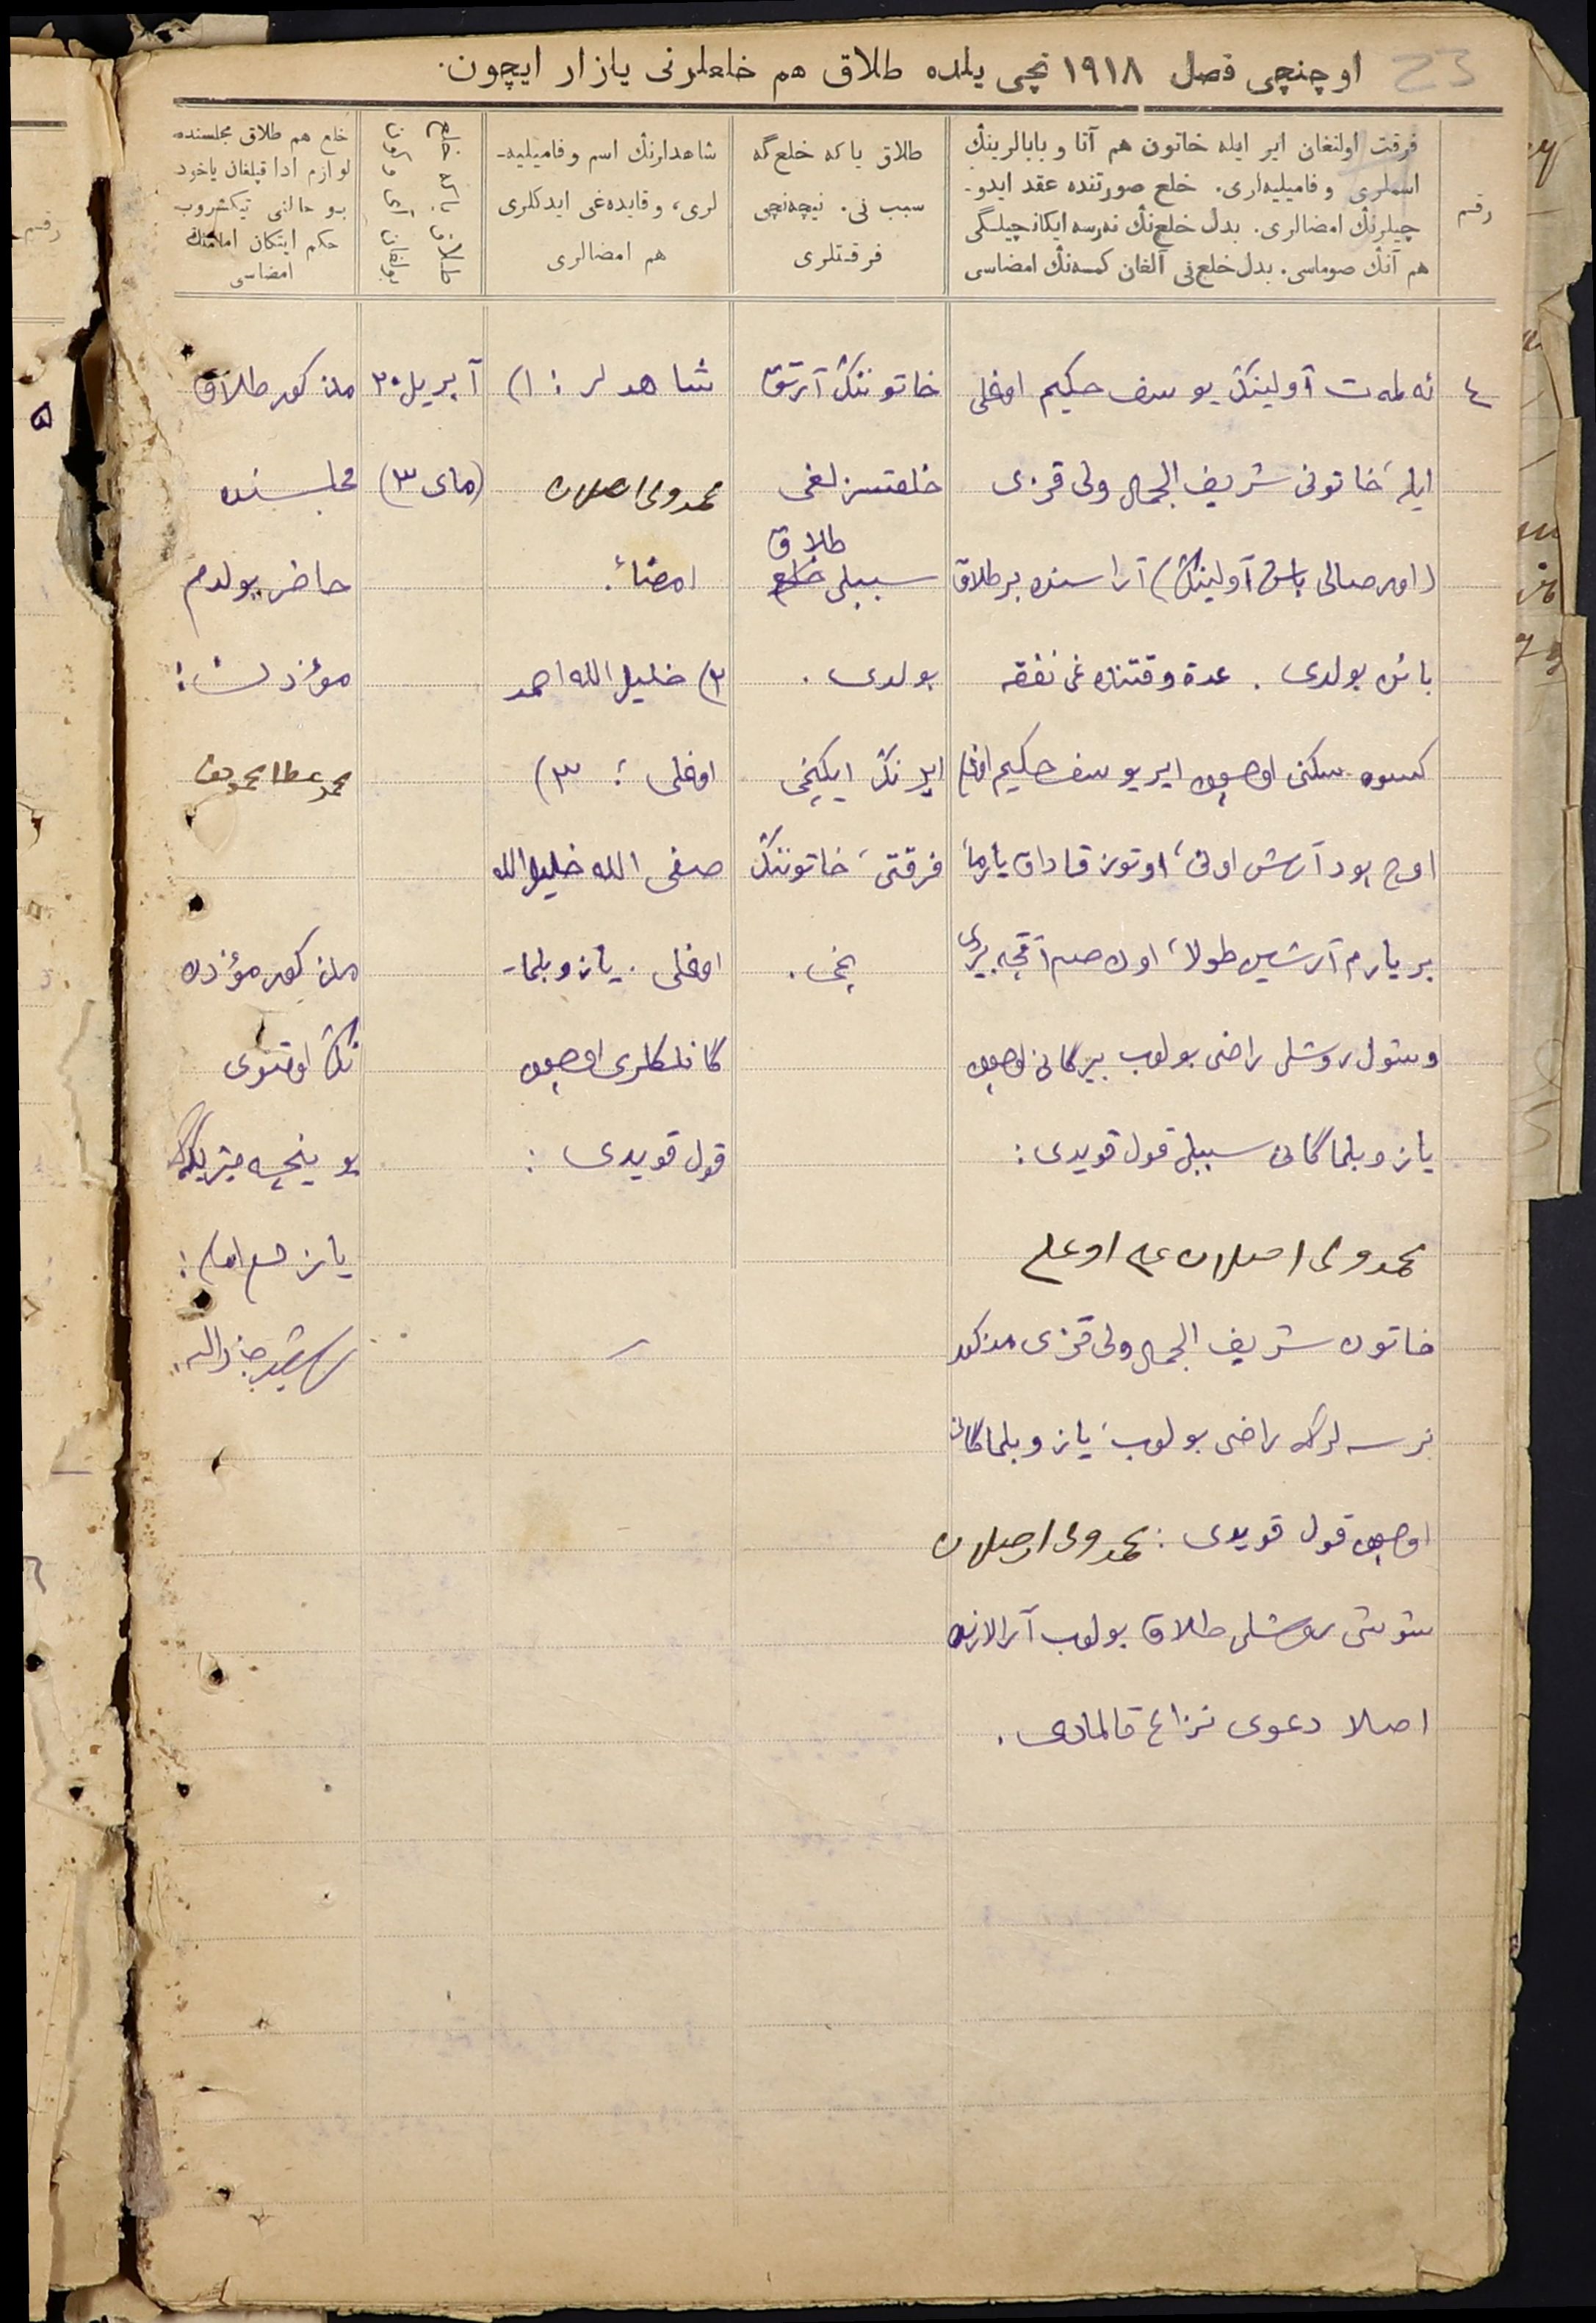 اوچنچی فصل ١٩١٨ نچی یلده طلاق هم خلعلرنی یازار ایچون.
23
رقم
فرقت اولنغان ایر ایله خاتون هم آتا و بابالرینڭ
اسملری و فامیلیه‌لری. خلع صورتنده عقد ایدو-
چیلرنڭ امضالری. بدل خلع‌نڭ نەرسه ایکانچیلگی
هم آنڭ صوماسی. بدل خلع‌نی آلغان کمسه‌نڭ امضاسی
طلاق یا که خلع‌گه
سبب نی. نیچه‌نچی
فرقتلری
شاهدلرنڭ اسم و فامیلیه-
لری، و قایده‌غی ایدکلری
هم امضالری
خلع هم طلاق مجلسنده
لوازم ادا قیلغان یاخود
بو حالنی تیکشروب
حکم ایتکان امامنڭ
امضاسی
٤
ئه‌لمه‌ت آولینڭ یوسف حکیم اوغلی
ایله خاتونی شریف الجمال ولی قزی
( باش آولینڭ) آراسنده بر طلاق
بائن بولدی. عدة وقتنده‌غی نفقه
کسوه سکنی اوچون ایر یوسف حکیم اوغلی
اوچ پود آرش اونی، اوتوز قاداق یارما،
بر یارم آرشین طولا، اون صوم آقچه بیردی
وشول روشلی راضی بولوب بیرگانی اوچون
یازو بلماگانی سببلی قول قویدی:
محمدولی اصلان اوغلی
خاتون شریف الجمال ولی قزی مذکور
نرسه‌لرگه راضی بولوب، یازو بلماگانی
اوچون قول قویدی: محمدولی اصلان
شوشی روشلی طلاق بولوب آرالارنده
اصلا دعوی نزاع قالمادی.
خاتوننڭ آرتق
خلقتسزلغی
طلاق
سببلی خلع
بولدی.
ایرنڭ ایکنچی
فرقتی، خاتوننڭ
نچی.
شاهدلر: ١)
محمدولی اصلان
امضاء.
٢) خلیل الله احمد
اوغلی؛ ٣)
صفی الله خلیل الله
اوغلی. یازو بلما-
گانلکلری اوچون
قول قویدی:
آپریل ٢٠
(مای ٣)
مذکور طلاق
مجلسنده
حاضر بولدم
مؤذن:
محمد عطا
مذکور مؤذن
نڭ اوقتوی
بوینچه متریکه‌گه
یازدم امام: